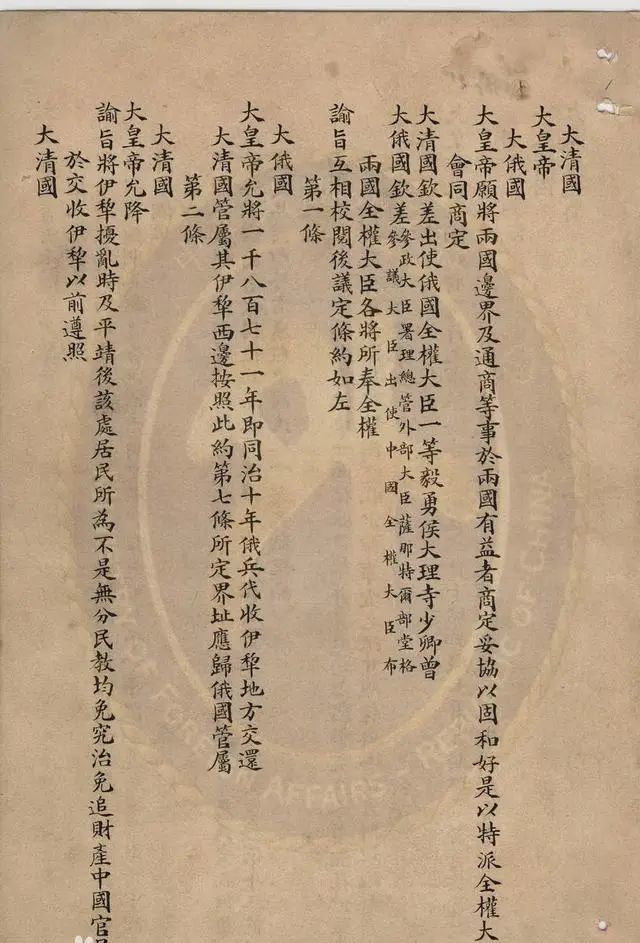 大清國
大皇帝
大俄國
大皇帝願將兩國邊界及通商等事於兩國有益者商定妥協以固和好是以特派全權大
會同商定
大清國欽差出使俄國全權大臣一等毅勇侯大理寺少卿曾
大俄國欽差參政大臣署理總管外部大臣薩那特爾部堂格
參議大臣出使中國全權大臣布
兩國全權大臣各將所奉全權
諭旨互相校閱後議定條約如左
第一條
大俄國
大皇帝允將一千八百七十一年即同治十年俄兵代收伊犁地方交還
大清國管屬其伊犁西邊按照此約第七條所定界址應歸俄國管屬
第二條
大清國
大皇帝允降
諭旨將伊犁擾亂時及平靖後該處居民所為不是無分民教均免究治免追財產中國官
於交收伊犁以前遵照
大清國
AFFAIRS